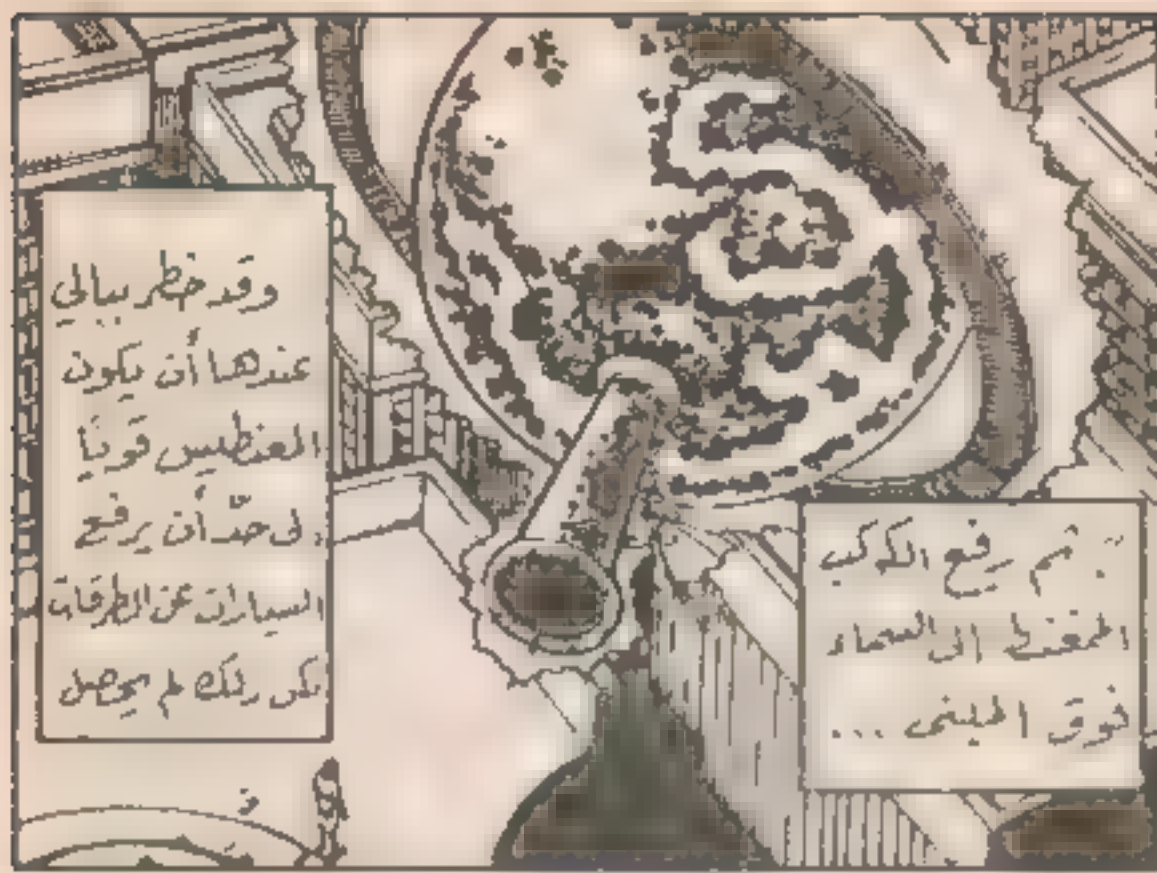 ثم رفع الكوكب
الممغنط الى السماء
فوق المبنى ...
وقد خطر ببالي
عندها أن يكون
المغنطيس قويًا
الى حدّ أن يرفع
السيارات عن الطرقات
لكن ذلك لم يحصل